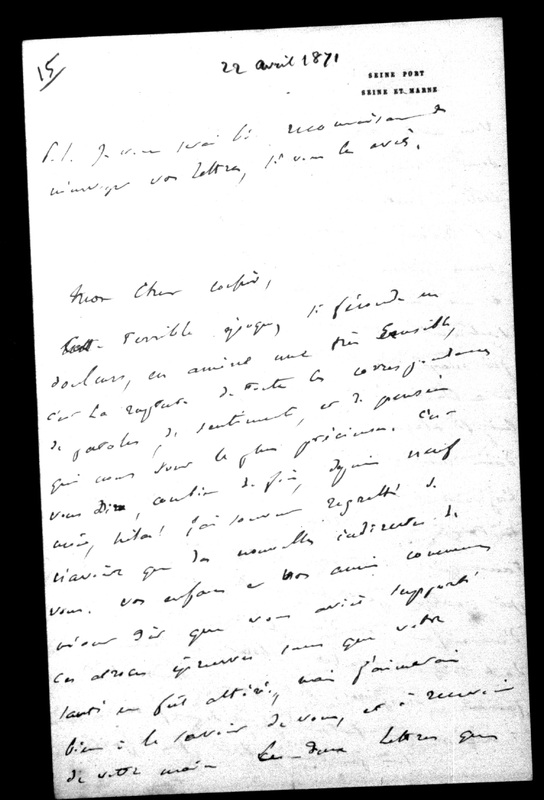 15
22 avril 1871
SEINE PORT
SEINE ET MARNE
P.S. Je vous serai bien reconnaissant de
m'envoyer vos lettres, si vous les avez.
Mon cher confrère,
Cette terrible époque, si féconde en
douleurs, en amène une très sensible,
c'est la rupture de toutes les correspondances
de paroles, de sentiments, et de pensées
qui nous sont les plus précieuses. C'est
vous dire, combien de fois, depuis neuf
mois, hélas! j'ai souvent regretté de
n'avoir que des nouvelles indirectes de
vous. Vos enfans et nos amis communs
m'ont dit que vous aviez supporté
ces atroces épreuves sans que votre
santé en fût altérée, mais j'aimerais
bien à le savoir de vous, et à recevoir
de votre main les deux lettres que